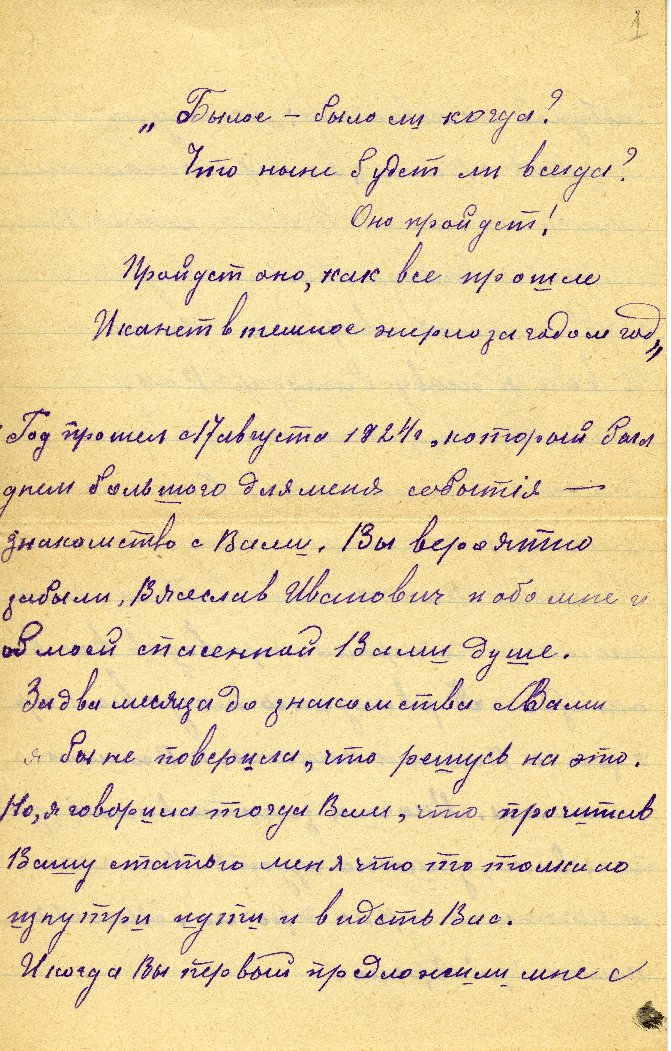 1
„Былое – было ли когда?
Что ныне будет ли всегда?
Оно пройдет!
Пройдет оно, как все прошло
И канет в темное жерло за годом год„
Год прошел с 17 августа 1924 г., который был
днем большого для меня событія —
знакомство с Вами. Вы вероятно
забыли, Вячеслав Иванович и обо мне и
об моей спасенной Вами душе.
За два месяца до знакомства с Вами
я бы не поверила, что решусь на это.
Но, я говорила тогда Вам, что прочитав
Вашу статью меня что то толкало
изнутри идти и видеть Вас.
И когда Вы первый предложили мне с